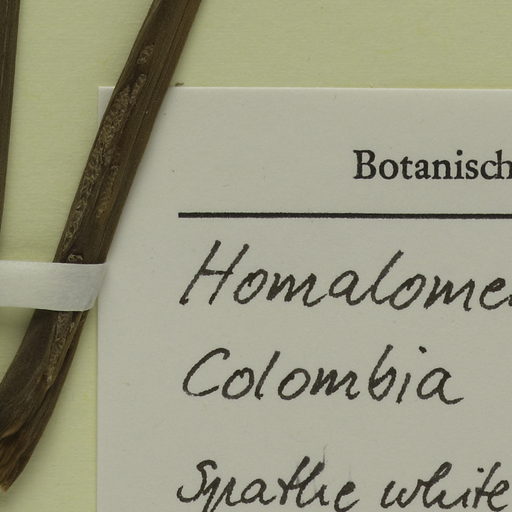 Botanisch
Homalome
Colombia
Spathe white